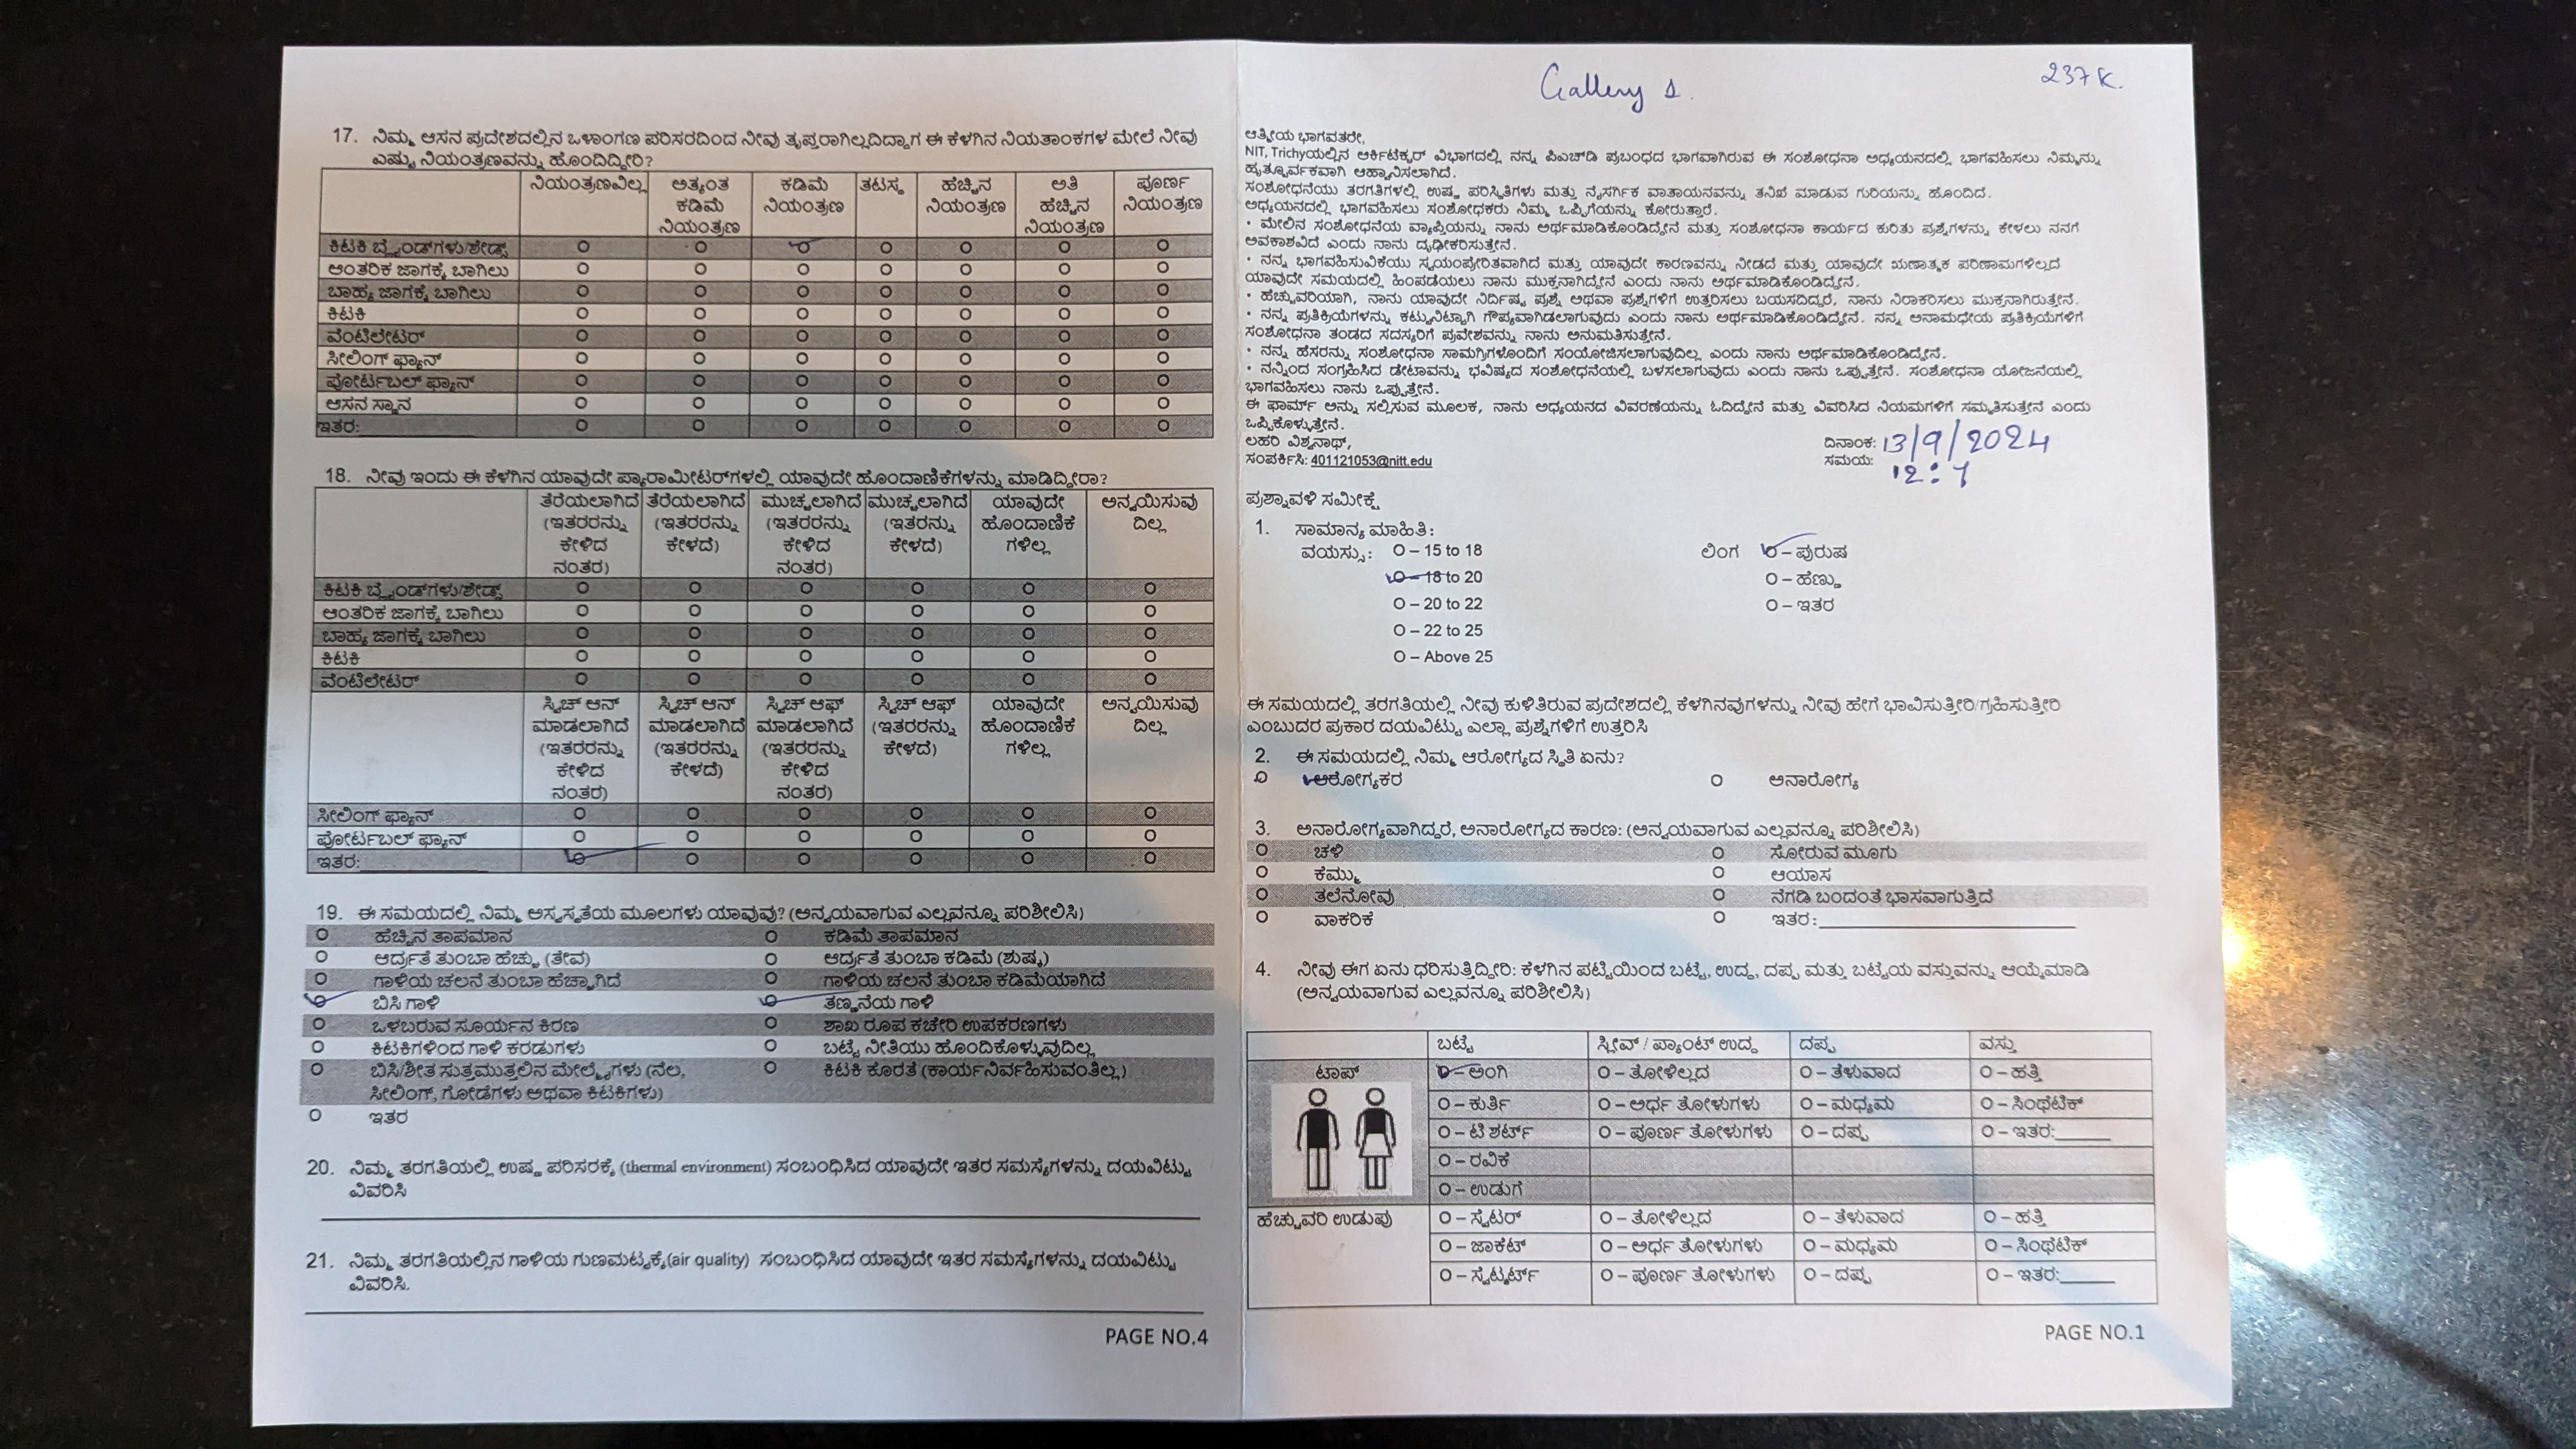 17. ನಿಮ್ಮ ಆಸನ ಪ್ರದೇಶದಲ್ಲಿನ ಒಳಾಂಗಣ ಪರಿಸರದಿಂದ ನೀವು ತೃಪ್ತರಾಗಿಲ್ಲದಿದ್ದಾಗ ಈ ಕೆಳಗಿನ ನಿಯತಾಂಕಗಳ ಮೇಲೆ ನೀವು
ಎಷ್ಟು ನಿಯಂತ್ರಣವನ್ನು ಹೊಂದಿದ್ದೀರಿ?
ನಿಯಂತ್ರಣವಿಲ್ಲ ಅತ್ಯಂತ ಕಡಿಮೆ ತಟಸ್ಥ ಹೆಚ್ಚಿನ ಅತಿ ಪೂರ್ಣ
ಕಡಿಮೆ ನಿಯಂತ್ರಣ ನಿಯಂತ್ರಣ ಹೆಚ್ಚಿನ ನಿಯಂತ್ರಣ
ನಿಯಂತ್ರಣ ನಿಯಂತ್ರಣ
ಕಿಟಕಿ ಬ್ಲೈಂಡ್‌ಗಳು/ಶೇಡ್ಸ್ O O O O O O O
ಆಂತರಿಕ ಜಾಗಕ್ಕೆ ಬಾಗಿಲು O O O O O O O
ಬಾಹ್ಯ ಜಾಗಕ್ಕೆ ಬಾಗಿಲು O O O O O O O
ಕಿಟಕಿ O O O O O O O
ವೆಂಟಿಲೇಟರ್ O O O O O O O
ಸೀಲಿಂಗ್ ಫ್ಯಾನ್ O O O O O O O
ಪೋರ್ಟಬಲ್ ಫ್ಯಾನ್ O O O O O O O
ಆಸನ ಸ್ಥಾನ O O O O O O O
ಇತರ: O O O O O O O
18. ನೀವು ಇಂದು ಈ ಕೆಳಗಿನ ಯಾವುದೇ ಪ್ಯಾರಾಮೀಟರ್‌ಗಳಲ್ಲಿ ಯಾವುದೇ ಹೊಂದಾಣಿಕೆಗಳನ್ನು ಮಾಡಿದ್ದೀರಾ?
ತೆರೆಯಲಾಗಿದೆ ತೆರೆಯಲಾಗಿದೆ ಮುಚ್ಚಲಾಗಿದೆ ಮುಚ್ಚಲಾಗಿದೆ ಯಾವುದೇ ಅನ್ವಯಿಸುವು
(ಇತರರನ್ನು (ಇತರರನ್ನು (ಇತರರನ್ನು (ಇತರನ್ನು ಹೊಂದಾಣಿಕೆ ದಿಲ್ಲ
ಕೇಳಿದ ಕೇಳದೆ) ಕೇಳಿದ ಕೇಳದೆ) ಗಳಿಲ್ಲ
ನಂತರ) ನಂತರ)
ಕಿಟಕಿ ಬ್ಲೈಂಡ್‌ಗಳು/ಶೇಡ್ಸ್ O O O O O O
ಆಂತರಿಕ ಜಾಗಕ್ಕೆ ಬಾಗಿಲು O O O O O O
ಬಾಹ್ಯ ಜಾಗಕ್ಕೆ ಬಾಗಿಲು O O O O O O
ಕಿಟಕಿ O O O O O O
ವೆಂಟಿಲೇಟರ್ O O O O O O
ಸ್ವಿಚ್ ಆನ್ ಸ್ವಿಚ್ ಆನ್ ಸ್ವಿಚ್ ಆಫ್ ಸ್ವಿಚ್ ಆಫ್ ಯಾವುದೇ ಅನ್ವಯಿಸುವು
ಮಾಡಲಾಗಿದೆ ಮಾಡಲಾಗಿದೆ ಮಾಡಲಾಗಿದೆ (ಇತರರನ್ನು ಹೊಂದಾಣಿಕೆ ದಿಲ್ಲ
(ಇತರರನ್ನು (ಇತರರನ್ನು (ಇತರರನ್ನು ಕೇಳದೆ) ಗಳಿಲ್ಲ
ಕೇಳಿದ ಕೇಳದೆ) ಕೇಳಿದ
ನಂತರ) ನಂತರ)
ಸೀಲಿಂಗ್ ಫ್ಯಾನ್ O O O O O O
ಪೋರ್ಟಬಲ್ ಫ್ಯಾನ್ O O O O O O
ಇತರ: O O O O O O
19. ಈ ಸಮಯದಲ್ಲಿ ನಿಮ್ಮ ಅಸ್ವಸ್ಥತೆಯ ಮೂಲಗಳು ಯಾವುವು? (ಅನ್ವಯವಾಗುವ ಎಲ್ಲವನ್ನೂ ಪರಿಶೀಲಿಸಿ)
O ಹೆಚ್ಚಿನ ತಾಪಮಾನ O ಕಡಿಮೆ ತಾಪಮಾನ
O ಆರ್ದ್ರತೆ ತುಂಬಾ ಹೆಚ್ಚು (ತೇವ) O ಆರ್ದ್ರತೆ ತುಂಬಾ ಕಡಿಮೆ (ಶುಷ್ಕ)
O ಗಾಳಿಯ ಚಲನೆ ತುಂಬಾ ಹೆಚ್ಚಾಗಿದೆ O ಗಾಳಿಯ ಚಲನೆ ತುಂಬಾ ಕಡಿಮೆಯಾಗಿದೆ
O ಬಿಸಿ ಗಾಳಿ O ತಣ್ಣನೆಯ ಗಾಳಿ
O ಒಳಬರುವ ಸೂರ್ಯನ ಕಿರಣ O ಶಾಖ ರೂಪ ಕಚೇರಿ ಉಪಕರಣಗಳು
O ಕಿಟಕಿಗಳಿಂದ ಗಾಳಿ ಕರಡುಗಳು O ಬಟ್ಟೆ ನೀತಿಯು ಹೊಂದಿಕೊಳ್ಳುವುದಿಲ್ಲ
O ಬಿಸಿ/ಶೀತ ಸುತ್ತಮುತ್ತಲಿನ ಮೇಲ್ಮೈಗಳು (ನೆಲ, O ಕಿಟಕಿ ಕೊರತೆ (ಕಾರ್ಯನಿರ್ವಹಿಸುವಂತಿಲ್ಲ)
ಸೀಲಿಂಗ್, ಗೋಡೆಗಳು ಅಥವಾ ಕಿಟಕಿಗಳು)
O ಇತರ
20. ನಿಮ್ಮ ತರಗತಿಯಲ್ಲಿ ಉಷ್ಣ ಪರಿಸರಕ್ಕೆ (thermal environment) ಸಂಬಂಧಿಸಿದ ಯಾವುದೇ ಇತರ ಸಮಸ್ಯೆಗಳನ್ನು ದಯವಿಟ್ಟು
ವಿವರಿಸಿ
21. ನಿಮ್ಮ ತರಗತಿಯಲ್ಲಿನ ಗಾಳಿಯ ಗುಣಮಟ್ಟಕ್ಕೆ(air quality) ಸಂಬಂಧಿಸಿದ ಯಾವುದೇ ಇತರ ಸಮಸ್ಯೆಗಳನ್ನು ದಯವಿಟ್ಟು
ವಿವರಿಸಿ.
PAGE NO.4
Gallery 1.
237 K.
ಆತ್ಮೀಯ ಭಾಗವತರೇ,
NIT, Trichyಯಲ್ಲಿನ ಆರ್ಕಿಟೆಕ್ಚರ್ ವಿಭಾಗದಲ್ಲಿ ನನ್ನ ಪಿಎಚ್‌ಡಿ ಪ್ರಬಂಧದ ಭಾಗವಾಗಿರುವ ಈ ಸಂಶೋಧನಾ ಅಧ್ಯಯನದಲ್ಲಿ ಭಾಗವಹಿಸಲು ನಿಮ್ಮನ್ನು
ಹೃತ್ಪೂರ್ವಕವಾಗಿ ಆಹ್ವಾನಿಸಲಾಗಿದೆ.
ಸಂಶೋಧನೆಯು ತರಗತಿಗಳಲ್ಲಿ ಉಷ್ಣ ಪರಿಸ್ಥಿತಿಗಳು ಮತ್ತು ನೈಸರ್ಗಿಕ ವಾತಾಯನವನ್ನು ತನಿಖೆ ಮಾಡುವ ಗುರಿಯನ್ನು ಹೊಂದಿದೆ.
ಅಧ್ಯಯನದಲ್ಲಿ ಭಾಗವಹಿಸಲು ಸಂಶೋಧಕರು ನಿಮ್ಮ ಒಪ್ಪಿಗೆಯನ್ನು ಕೋರುತ್ತಾರೆ.
• ಮೇಲಿನ ಸಂಶೋಧನೆಯ ವ್ಯಾಪ್ತಿಯನ್ನು ನಾನು ಅರ್ಥಮಾಡಿಕೊಂಡಿದ್ದೇನೆ ಮತ್ತು ಸಂಶೋಧನಾ ಕಾರ್ಯದ ಕುರಿತು ಪ್ರಶ್ನೆಗಳನ್ನು ಕೇಳಲು ನನಗೆ
ಅವಕಾಶವಿದೆ ಎಂದು ನಾನು ದೃಢೀಕರಿಸುತ್ತೇನೆ.
• ನನ್ನ ಭಾಗವಹಿಸುವಿಕೆಯು ಸ್ವಯಂಪ್ರೇರಿತವಾಗಿದೆ ಮತ್ತು ಯಾವುದೇ ಕಾರಣವನ್ನು ನೀಡದೆ ಮತ್ತು ಯಾವುದೇ ಋಣಾತ್ಮಕ ಪರಿಣಾಮಗಳಿಲ್ಲದೆ
ಯಾವುದೇ ಸಮಯದಲ್ಲಿ ಹಿಂಪಡೆಯಲು ನಾನು ಮುಕ್ತನಾಗಿದ್ದೇನೆ ಎಂದು ನಾನು ಅರ್ಥಮಾಡಿಕೊಂಡಿದ್ದೇನೆ.
• ಹೆಚ್ಚುವರಿಯಾಗಿ, ನಾನು ಯಾವುದೇ ನಿರ್ದಿಷ್ಟ ಪ್ರಶ್ನೆ ಅಥವಾ ಪ್ರಶ್ನೆಗಳಿಗೆ ಉತ್ತರಿಸಲು ಬಯಸದಿದ್ದರೆ, ನಾನು ನಿರಾಕರಿಸಲು ಮುಕ್ತನಾಗಿರುತ್ತೇನೆ.
• ನನ್ನ ಪ್ರತಿಕ್ರಿಯೆಗಳನ್ನು ಕಟ್ಟುನಿಟ್ಟಾಗಿ ಗೌಪ್ಯವಾಗಿಡಲಾಗುವುದು ಎಂದು ನಾನು ಅರ್ಥಮಾಡಿಕೊಂಡಿದ್ದೇನೆ. ನನ್ನ ಅನಾಮಧೇಯ ಪ್ರತಿಕ್ರಿಯೆಗಳಿಗೆ
ಸಂಶೋಧನಾ ತಂಡದ ಸದಸ್ಯರಿಗೆ ಪ್ರವೇಶವನ್ನು ನಾನು ಅನುಮತಿಸುತ್ತೇನೆ.
• ನನ್ನ ಹೆಸರನ್ನು ಸಂಶೋಧನಾ ಸಾಮಗ್ರಿಗಳೊಂದಿಗೆ ಸಂಯೋಜಿಸಲಾಗುವುದಿಲ್ಲ ಎಂದು ನಾನು ಅರ್ಥಮಾಡಿಕೊಂಡಿದ್ದೇನೆ.
• ನನ್ನಿಂದ ಸಂಗ್ರಹಿಸಿದ ಡೇಟಾವನ್ನು ಭವಿಷ್ಯದ ಸಂಶೋಧನೆಯಲ್ಲಿ ಬಳಸಲಾಗುವುದು ಎಂದು ನಾನು ಒಪ್ಪುತ್ತೇನೆ. ಸಂಶೋಧನಾ ಯೋಜನೆಯಲ್ಲಿ
ಭಾಗವಹಿಸಲು ನಾನು ಒಪ್ಪುತ್ತೇನೆ.
ಈ ಫಾರ್ಮ್ ಅನ್ನು ಸಲ್ಲಿಸುವ ಮೂಲಕ, ನಾನು ಅಧ್ಯಯನದ ವಿವರಣೆಯನ್ನು ಓದಿದ್ದೇನೆ ಮತ್ತು ವಿವರಿಸಿದ ನಿಯಮಗಳಿಗೆ ಸಮ್ಮತಿಸುತ್ತೇನೆ ಎಂದು
ಒಪ್ಪಿಕೊಳ್ಳುತ್ತೇನೆ.
ಲಹರಿ ವಿಶ್ವನಾಥ್, ದಿನಾಂಕ: 13/9/2024
ಸಂಪರ್ಕಿಸಿ: 401121053@nitt.edu ಸಮಯ: 12:
ಪ್ರಶ್ನಾವಳಿ ಸಮೀಕ್ಷೆ
1. ಸಾಮಾನ್ಯ ಮಾಹಿತಿ:
ವಯಸ್ಸು: O – 15 to 18 ಲಿಂಗ O – ಪುರುಷ
O – 18 to 20 O – ಹೆಣ್ಣು
O – 20 to 22 O – ಇತರ
O – 22 to 25
O – Above 25
ಈ ಸಮಯದಲ್ಲಿ ತರಗತಿಯಲ್ಲಿ ನೀವು ಕುಳಿತಿರುವ ಪ್ರದೇಶದಲ್ಲಿ ಕೆಳಗಿನವುಗಳನ್ನು ನೀವು ಹೇಗೆ ಭಾವಿಸುತ್ತೀರಿ/ಗ್ರಹಿಸುತ್ತೀರಿ
ಎಂಬುದರ ಪ್ರಕಾರ ದಯವಿಟ್ಟು ಎಲ್ಲಾ ಪ್ರಶ್ನೆಗಳಿಗೆ ಉತ್ತರಿಸಿ
2. ಈ ಸಮಯದಲ್ಲಿ ನಿಮ್ಮ ಆರೋಗ್ಯದ ಸ್ಥಿತಿ ಏನು?
O ಆರೋಗ್ಯಕರ O ಅನಾರೋಗ್ಯ
3. ಅನಾರೋಗ್ಯವಾಗಿದ್ದರೆ, ಅನಾರೋಗ್ಯದ ಕಾರಣ: (ಅನ್ವಯವಾಗುವ ಎಲ್ಲವನ್ನೂ ಪರಿಶೀಲಿಸಿ)
O ಚಳಿ O ಸೋರುವ ಮೂಗು
O ಕೆಮ್ಮು O ಆಯಾಸ
O ತಲೆನೋವು O ನೆಗಡಿ ಬಂದಂತೆ ಭಾಸವಾಗುತ್ತಿದೆ
O ವಾಕರಿಕೆ O ಇತರ:
4. ನೀವು ಈಗ ಏನು ಧರಿಸುತ್ತಿದ್ದೀರಿ: ಕೆಳಗಿನ ಪಟ್ಟಿಯಿಂದ ಬಟ್ಟೆ, ಉದ್ದ, ದಪ್ಪ ಮತ್ತು ಬಟ್ಟೆಯ ವಸ್ತುವನ್ನು ಆಯ್ಕೆಮಾಡಿ
(ಅನ್ವಯವಾಗುವ ಎಲ್ಲವನ್ನೂ ಪರಿಶೀಲಿಸಿ)
ಬಟ್ಟೆ ಸ್ಲೀವ್ / ಪ್ಯಾಂಟ್ ಉದ್ದ ದಪ್ಪ ವಸ್ತು
ಟಾಪ್ O – ಅಂಗಿ O – ತೋಳಿಲ್ಲದ O – ತೆಳುವಾದ O – ಹತ್ತಿ
O – ಕುರ್ತಿ O – ಅರ್ಧ ತೋಳುಗಳು O – ಮಧ್ಯಮ O – ಸಿಂಥಟಿಕ್
O – ಟಿ ಶರ್ಟ್ O – ಪೂರ್ಣ ತೋಳುಗಳು O – ದಪ್ಪ O – ಇತರ:
O – ರವಿಕೆ
O – ಉಡುಗೆ
ಹೆಚ್ಚುವರಿ ಉಡುಪು O – ಸ್ವೆಟರ್ O – ತೋಳಿಲ್ಲದ O – ತೆಳುವಾದ O – ಹತ್ತಿ
O – ಜಾಕೆಟ್ O – ಅರ್ಧ ತೋಳುಗಳು O – ಮಧ್ಯಮ O – ಸಿಂಥಟಿಕ್
O – ಸ್ವೆಟ್ಶರ್ಟ್ O – ಪೂರ್ಣ ತೋಳುಗಳು O – ದಪ್ಪ O – ಇತರ:
PAGE NO.1